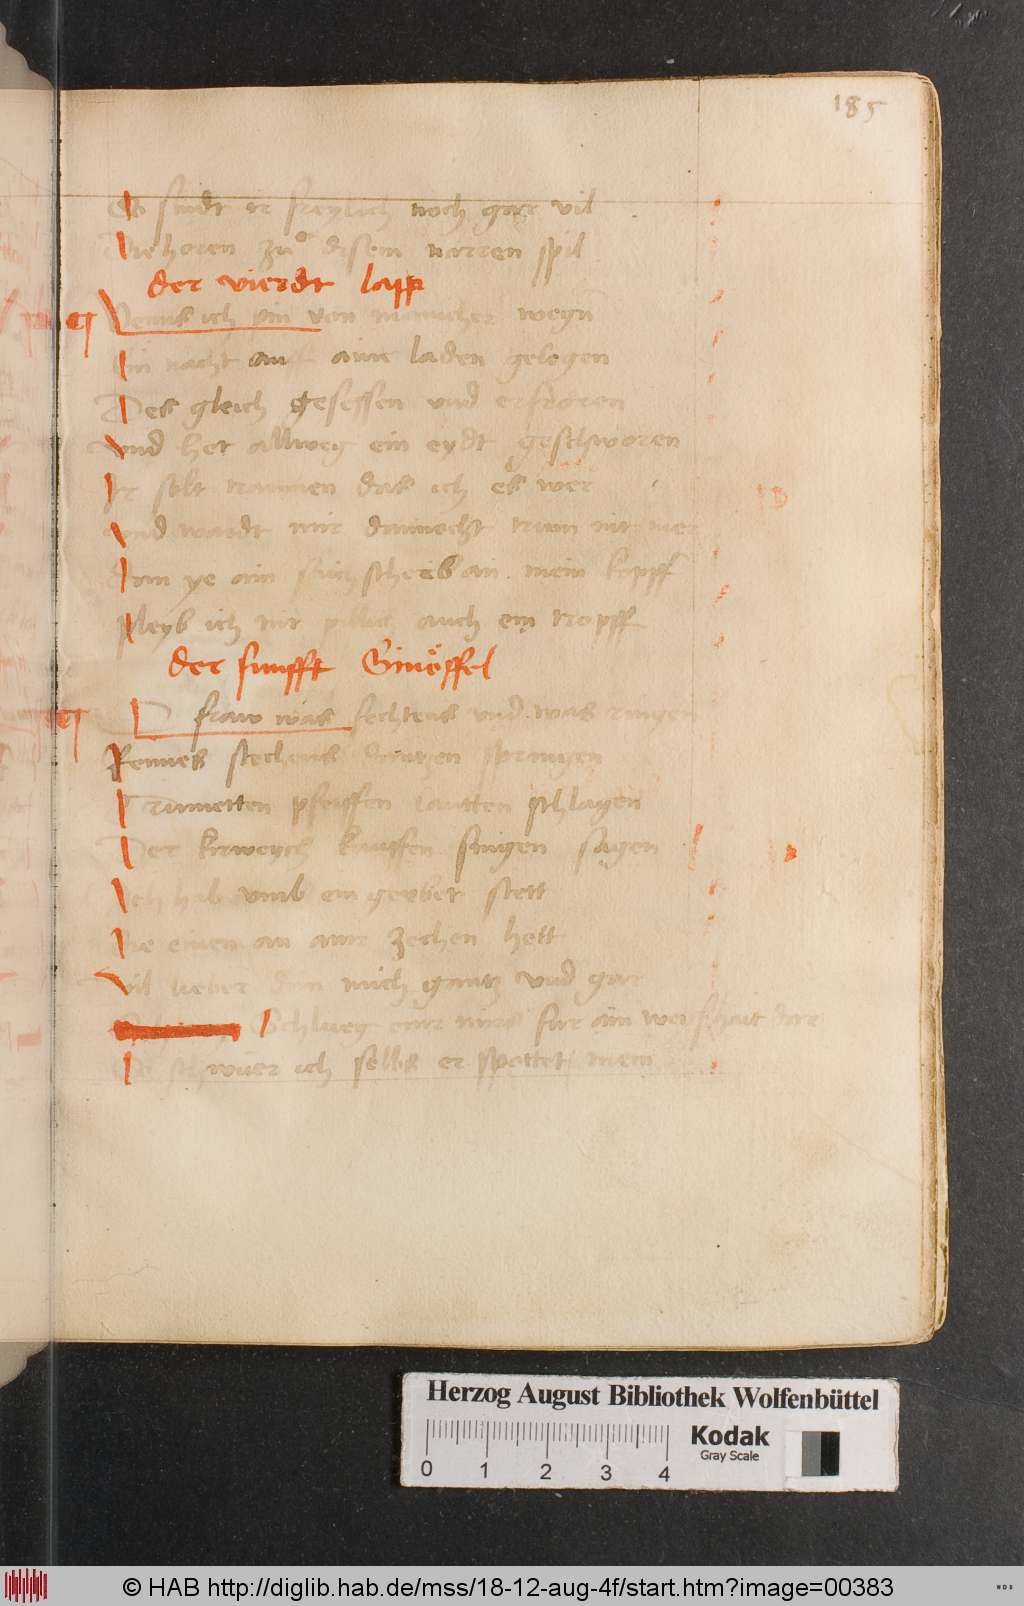 185
So sindt ir freylich noch gar vil
Die horen zů disem narren spil
der vierdt lapp
Venus ich pin von mancher wegn
Ein nacht auf aine laden gelegen
Des gleich gesessen und erfroren
Vnd het allweg ein eydt geschworen
Ir solt traumen das ich es wer
Vnd wardt mir dannocht trum nit mer
ye ain an mein kopff
Pleyb ich nit pillich auch ein tropff
der funfft Gineöffel
fraw was fechtens vnd was ringen
Rennes stechens dantzen springen
Trumetten pfeiffen lautten schlagen
Der kirweych kauffen singen sagen
Ich hab vmb ein gerbet stett
Die einem an aine zechen hett
Vil lieber dan mich gantz vnd gar
Schlueg eine für ain
So schwüer ich selbs er spottet mein
Herzog August Bibliothek Wolfenbüttel
Kodak
Gray Scale
0 1 2 3 4
© HAB http://diglib.hab.de/mss/18-12-aug-4f/start.htm?image=00383